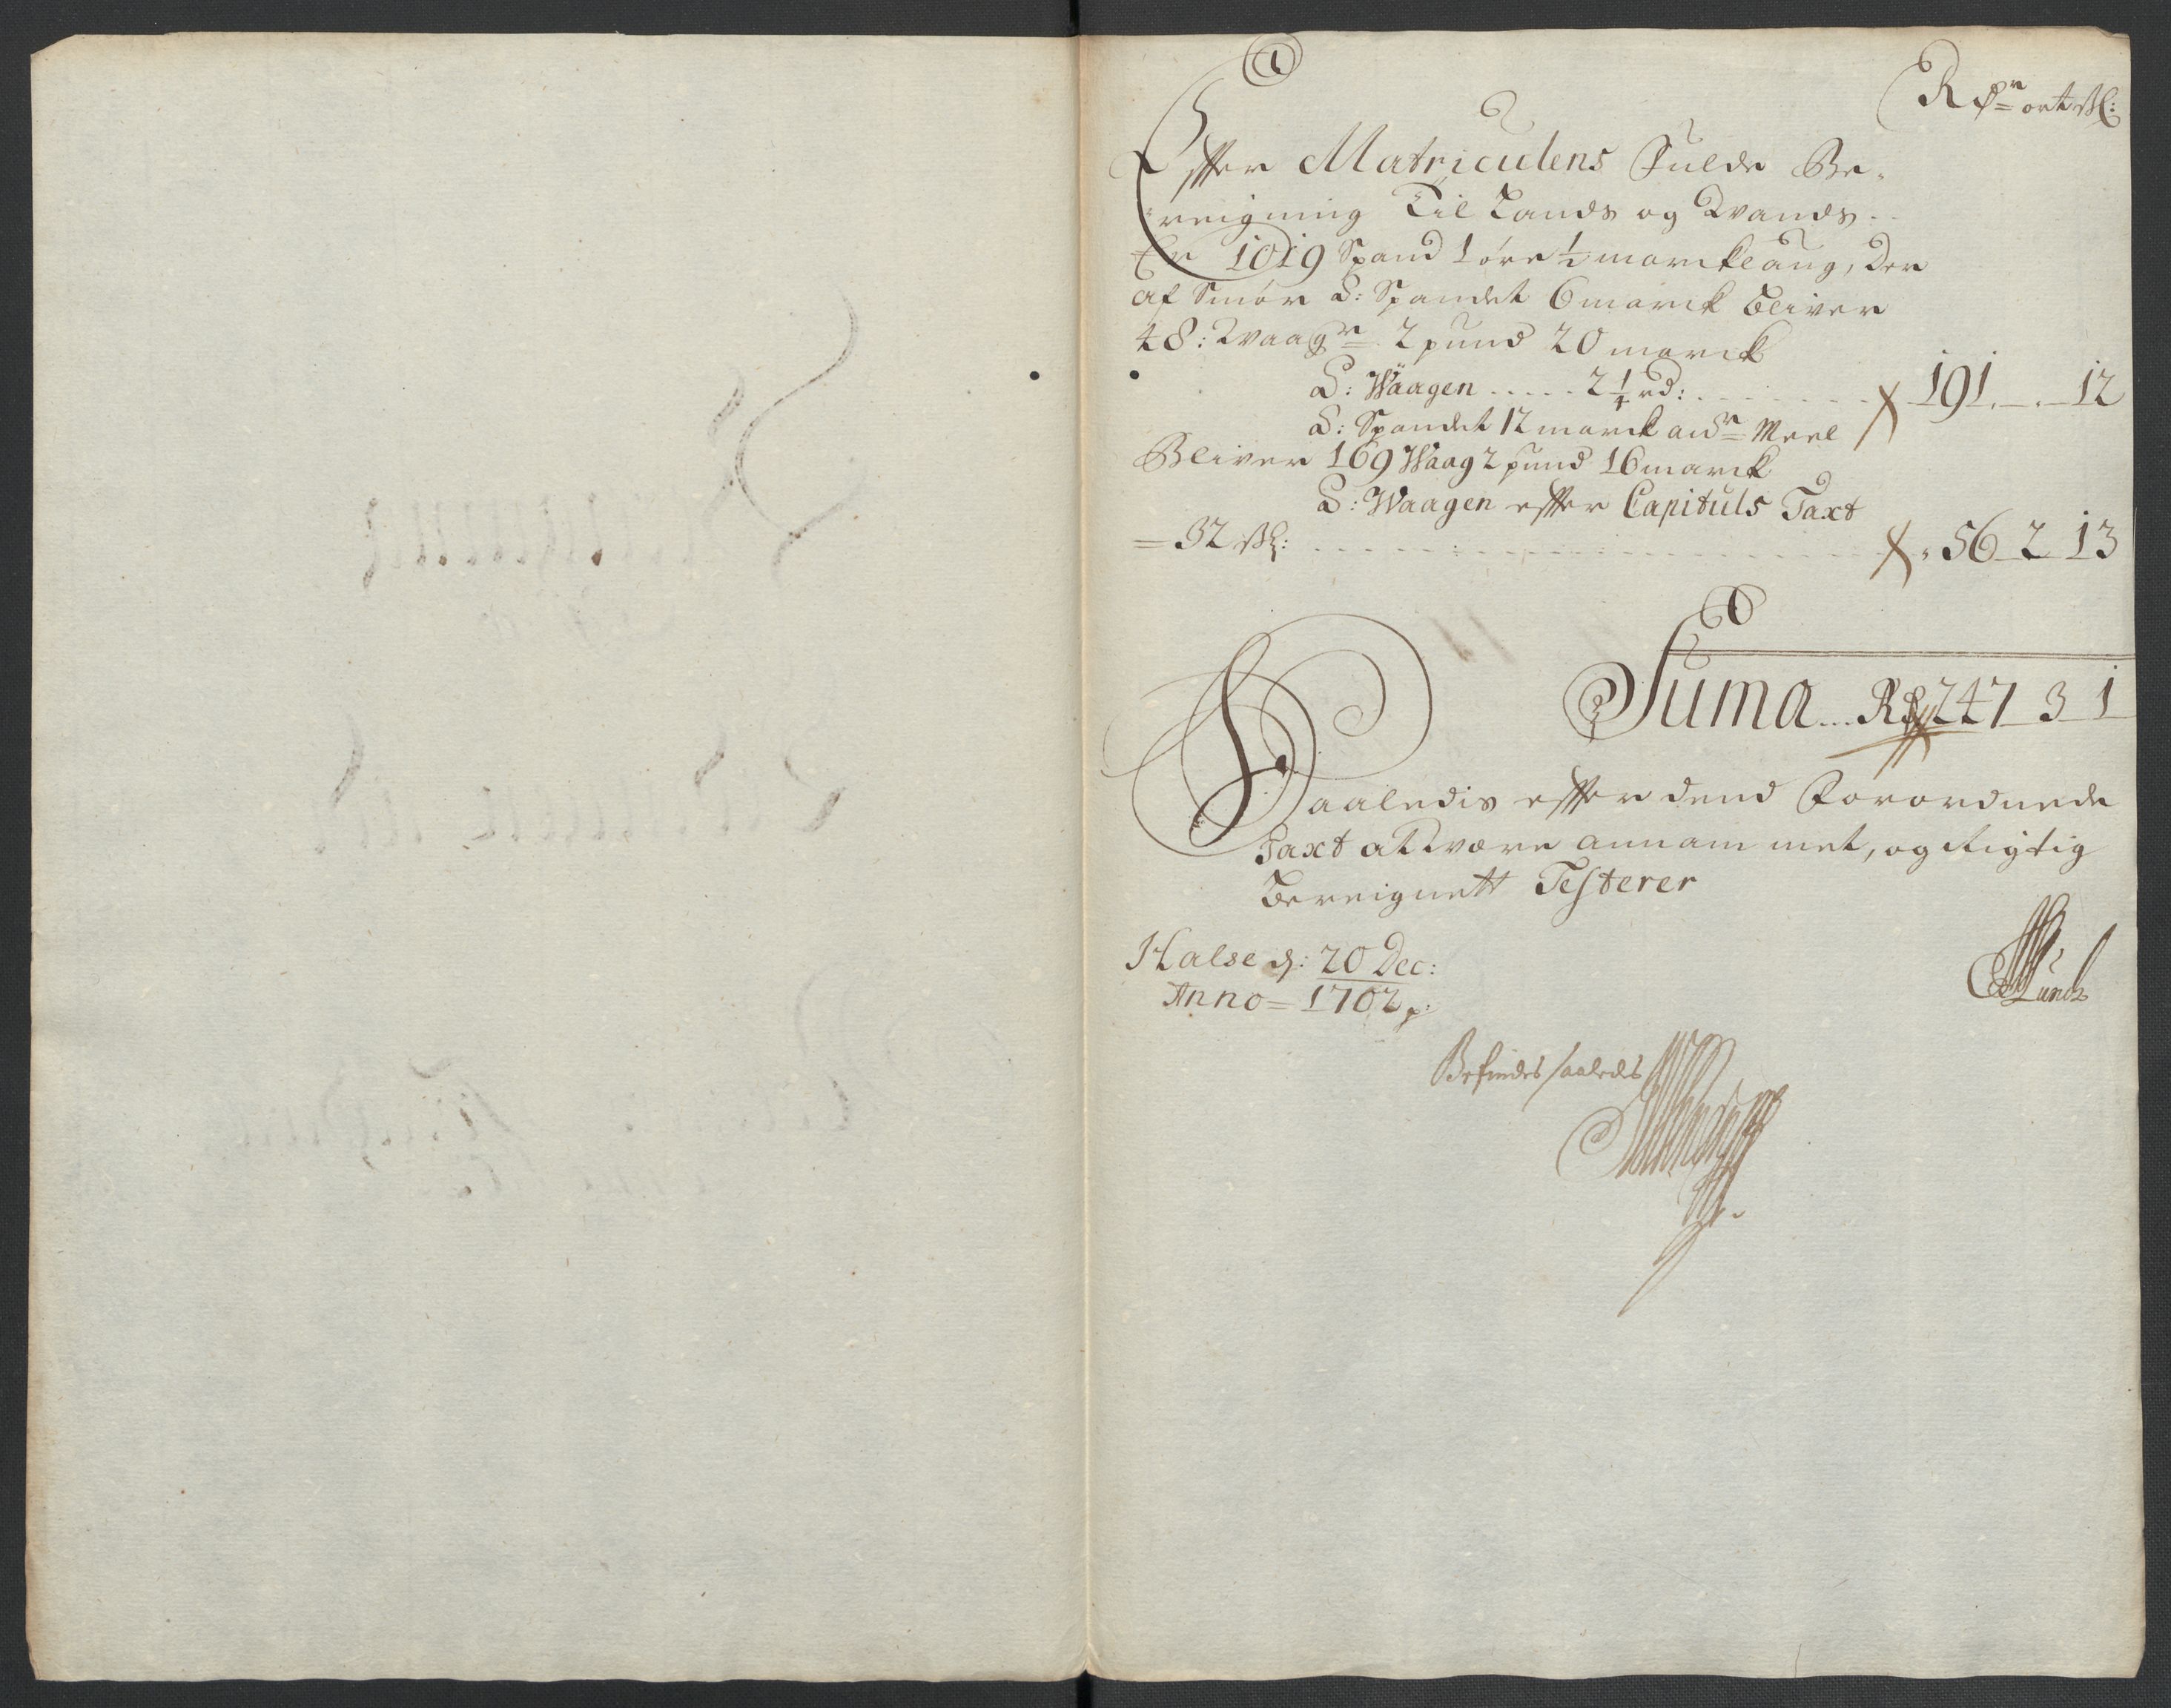 Rdr ort ß:
Effter Matriculens Fulde Be¬
reigning Til Lands og Wands
Er 1019 Spand 1 øre ½ marcklaug, Der
af Smør à: Spandet 6 marck bliver
48: Waagr 2 pund 20 marck
à: Waagen ..... 2¼ rd: ....... 191 . _ . 12
à: Spandet 12 marck Meel
Bliver 169 Waag 2 pund 16 marck
à: Waagen effter Capituls Taxt
= 32 ß: ....... 56 2 13
Suma ... Rd 247 3 1
Saaledis effter dend Forordnede
Taxt at være annammet, og Rigtig
bereignett Testerer
Halse d: 20 Dec:
Anno = 1702
Befindes saaledes